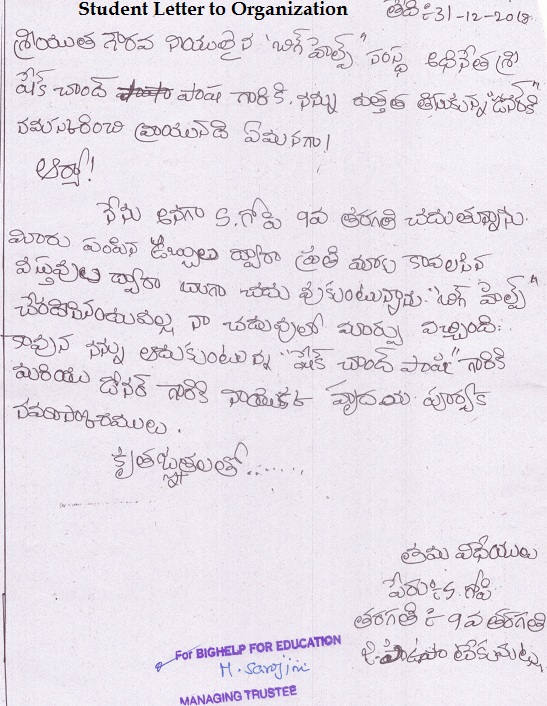 Student Letter to Organization
తేది : 31-12-2018
శ్రీయుత గౌరవ నియులైన "బిగ్ హెల్ప్" సంస్థ అధినేత శ్రీ
షేక్ చాంద్ పాషా గారికి. నన్ను దత్తత తీసుకున్న "డోనర్"కి
నమస్కరించి వ్రాయునది ఏమనగా!
ఆర్యా!
నేను అనగా S. గోపి 9వ తరగతి చదుతున్నాను.
మీరు పంపిన డబ్బులు ద్వారా ప్రతి మాకు కావలసిన
వస్తువుల ద్వారా బాగా చదువుకుంటున్నాను. "బిగ్ హెల్ప్"
చేరడమైనందువల్ల నా చదువులో మార్పు వచ్చింది.
కావున నన్ను ఆదుకుంటున్న "షేక్ చాంద్ పాషా" గారికి
మరియు డోనర్ గారికి నాయొక్క హృదయ పూర్వక
నమస్కారములు.
కృతజ్ఞతలతో......
తమ విధేయులు
పేరు : S. గోపి
తరగతి : 9వ తరగతి
For BIGHELP FOR EDUCATION
M. Sarojini
MANAGING TRUSTEE